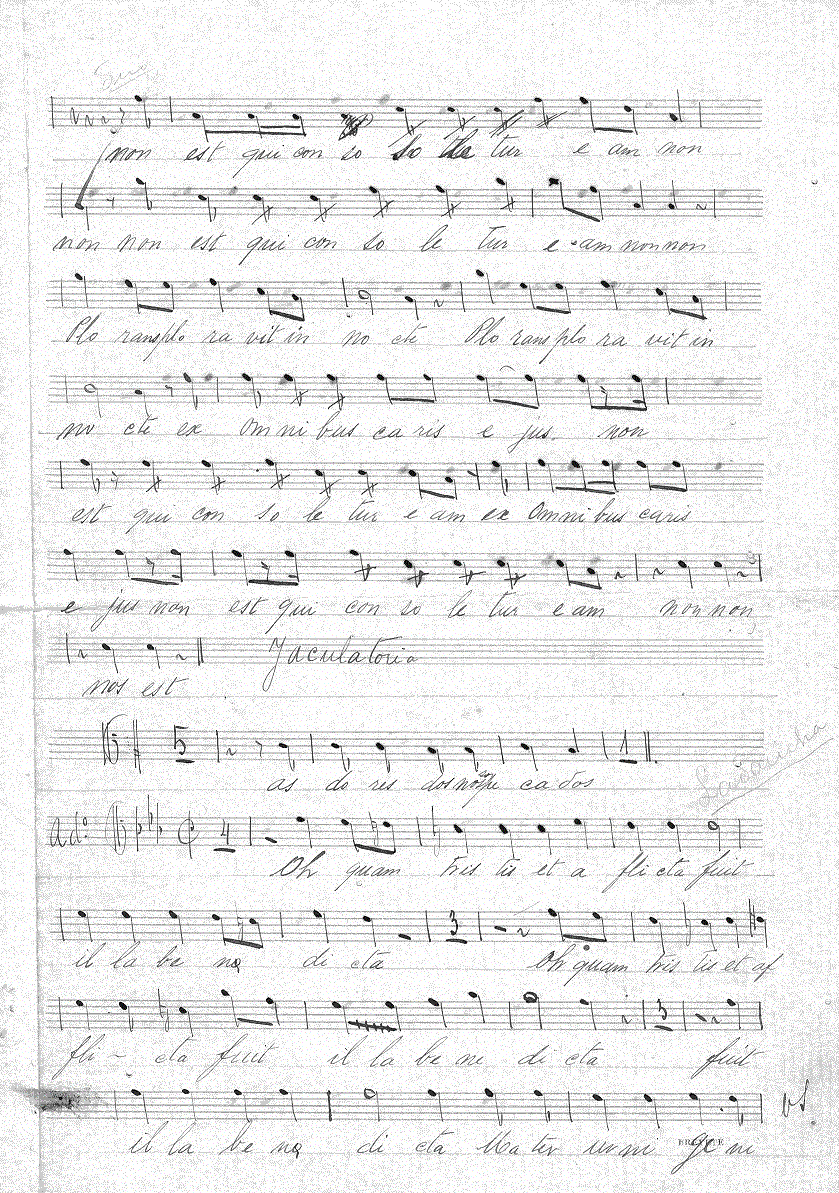 non est qui con so so le tur e am non
non non est qui con so le tur e am non non
Plo rans plo ra vit in no cte Plo rans plo ra vit in
no cte ex Omni bus ca ris e jus non
est qui con so le tur e am ex Omni bus caris
e jus non est qui con so le tur e am non non
nos est Jaculatoria
5 1
as do res dos pe ca dos
ad.º 4
Oh quam tris tis et a fli cta fuit
3
il la be ne di cta Oh quam tris tis et af
3
fli - cta fuit il la be ne di cta fuit
il la be ne di cta Ma ter uni ge ni